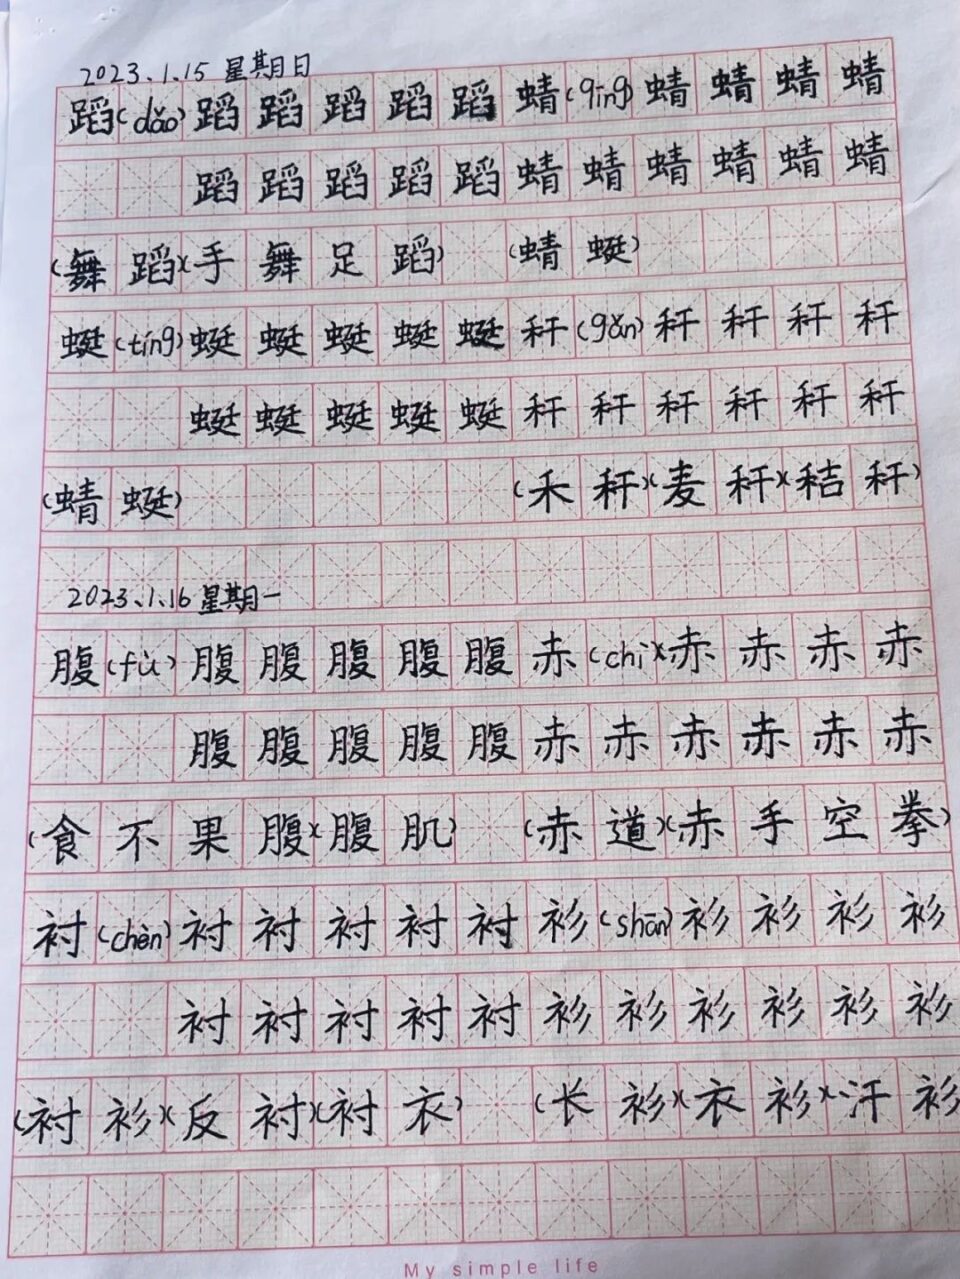 2023.1.15 星期日
蹈(dǎo)蹈蹈蹈蹈蹈蜻(qīng)蜻蜻蜻蜻
蹈蹈蹈蹈蹈蜻蜻蜻蜻蜻蜻
(舞蹈)(手舞足蹈) (蜻蜓)
蜓(tíng)蜓蜓蜓蜓蜓秆(gǎn)秆秆秆秆
蜓蜓蜓蜓蜓秆秆秆秆秆秆
(蜻蜓) (禾秆)(麦秆)(秸秆)
2023.1.16 星期一
腹(fù)腹腹腹腹腹赤(chì)赤赤赤赤
腹腹腹腹腹赤赤赤赤赤赤
(食不果腹)(腹肌) (赤道)(赤手空拳)
衬(chèn)衬衬衬衬衬衫(shān)衫衫衫衫
衬衬衬衬衬衫衫衫衫衫衫
(衬衫)(反衬)(衬衣) (长衫)(衣衫)(汗衫
My simple life